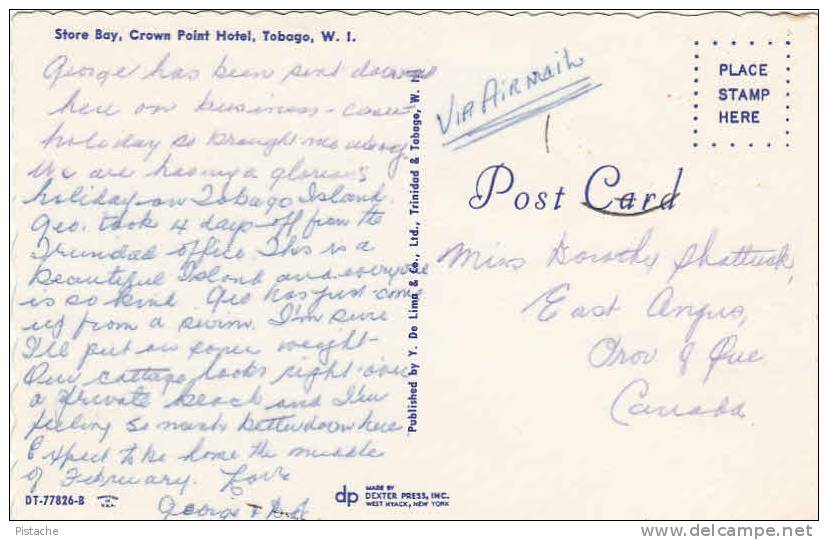 Store Bay, Crown Point Hotel, Tobago, W. I.
George has been sent down
here on business -
holiday so brought me along.
We are having a glorious
holiday on Tobago Island.
Geo. took 4 days off from the
Trinidad office. This is a
beautiful Island and everyone
is so kind. Geo has just come
up from a swim. I'm sure
I'll put on some weight-
Our cottage looks right over
a private beach and I'm
feeling so much better down here
Expect to be home the middle
of February. Love
George &
DT-77826-B
Published by Y. De Lima & Co., Ltd., Trinidad & Tobago, W. I.
VIA AIRMAIL
PLACE
STAMP
HERE
Post Card
Miss Dorothy Shattuck,
East Angus,
Prov of Que.
Canada.
dp MADE BY
DEXTER PRESS, INC.
WEST NYACK, NEW YORK
Pistache
www.delcampe.net